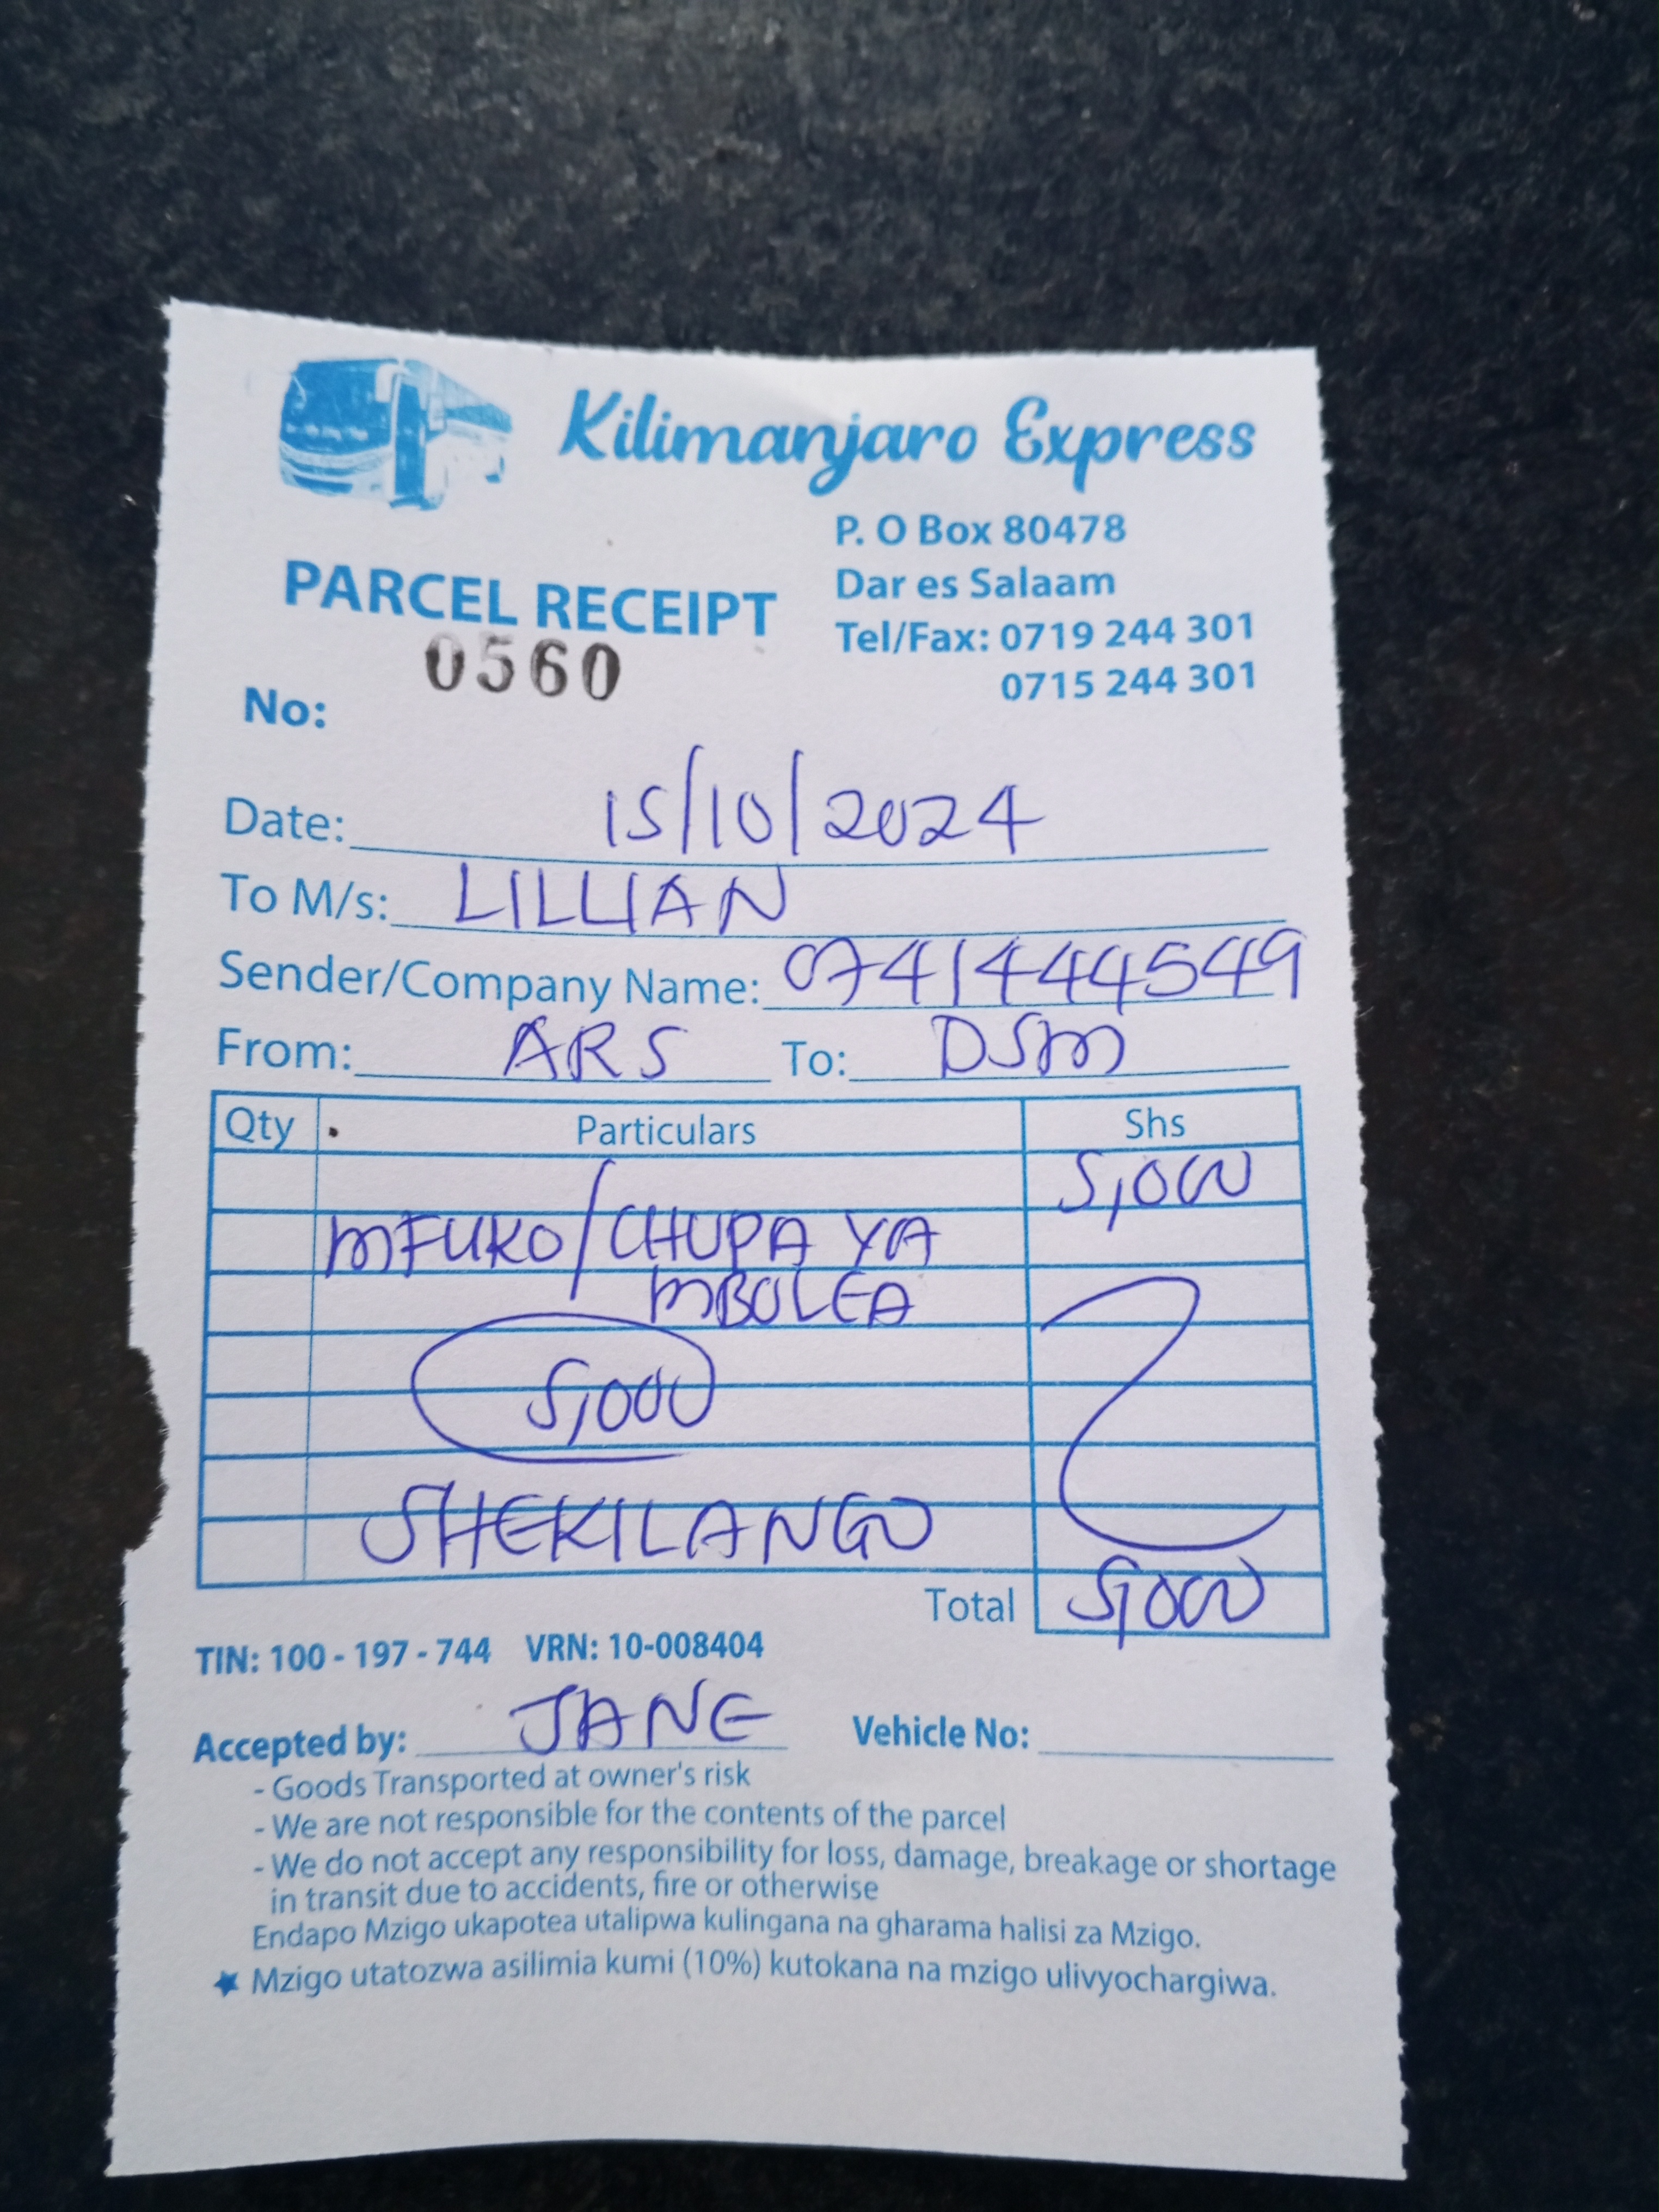 Kilimanjaro Express
P. O Box 80478
Dar es Salaam
Tel/Fax: 0719 244 301
0715 244 301
PARCEL RECEIPT
0560
No:
Date: 15/10/2024
To M/s: LILLIAN
Sender/Company Name: 0741444549
From: ARS To: DSM
Qty Particulars Shs
5,000
MFUKO/CHUPA YA
MBOLEA
5,000
SHEKILANGO
Total 5,000
TIN: 100 - 197 - 744 VRN: 10-008404
Accepted by: JANE Vehicle No:
- Goods Transported at owner's risk
- We are not responsible for the contents of the parcel
- We do not accept any responsibility for loss, damage, breakage or shortage
in transit due to accidents, fire or otherwise
Endapo Mzigo ukapotea utalipwa kulingana na gharama halisi za Mzigo.
★ Mzigo utatozwa asilimia kumi (10%) kutokana na mzigo ulivyochargiwa.